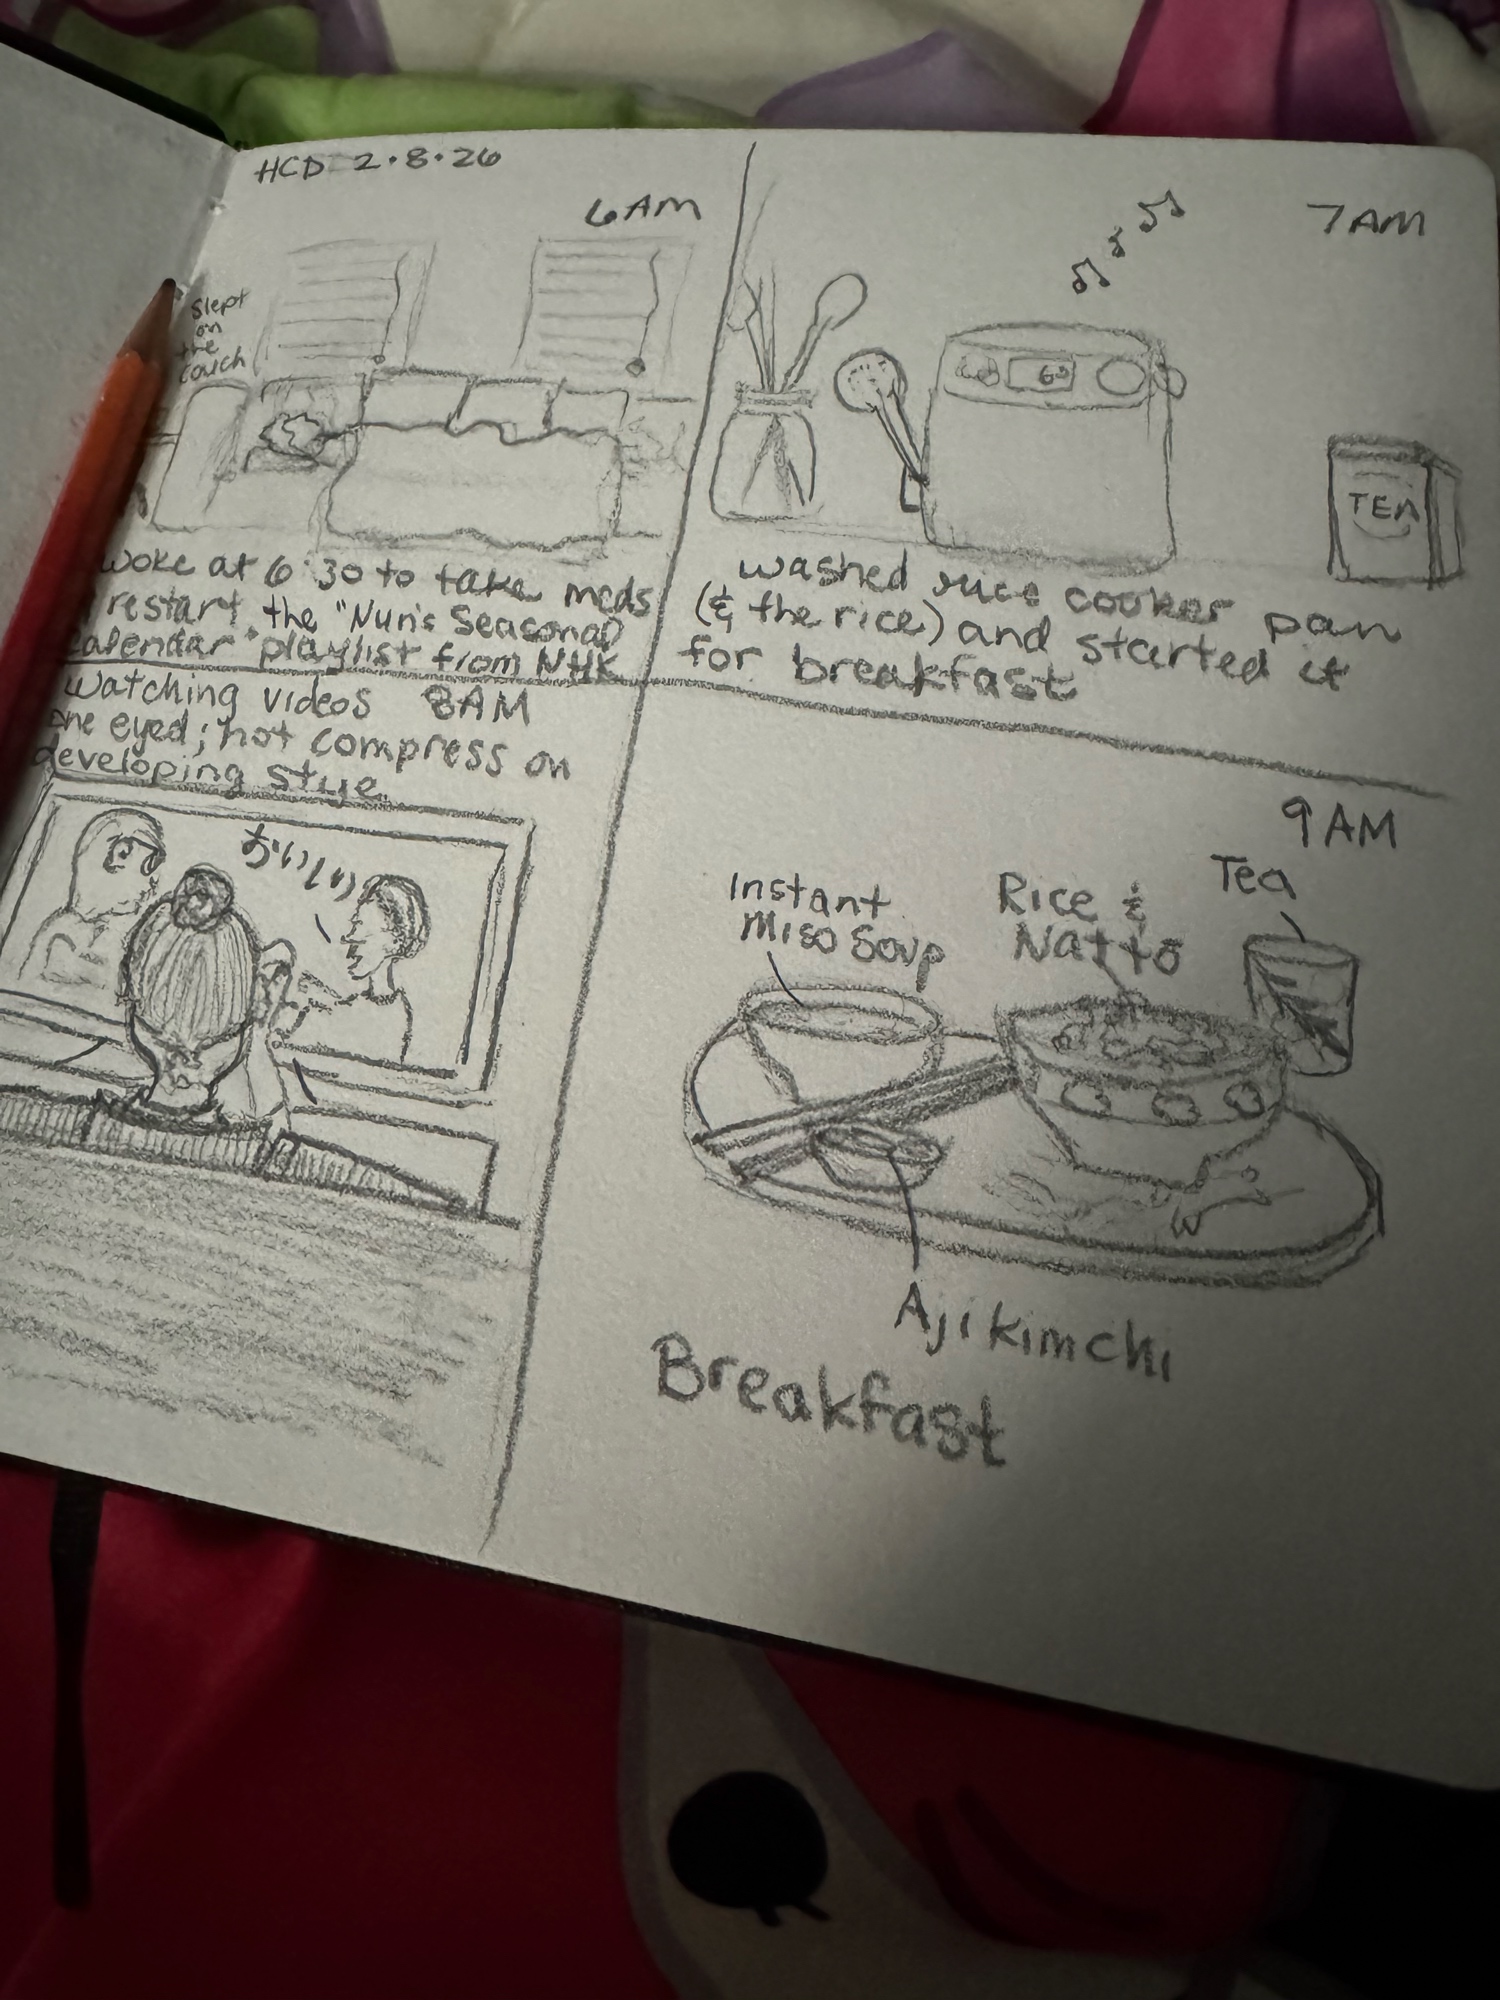 HCD 2.8.26
6AM
Slept
on
the
couch
woke at 6:30 to take meds
restart the "Nun's Seasonal
Calendar" playlist from NHK
7AM
60
TEA
washed rice cooker pan
(& the rice) and started it
for breakfast
watching videos 8AM
one eyed; hot compress on
developing stye.
おいしい
9AM
Instant
Miso Soup
Rice &
Nattō
Tea
Aji kimchi
Breakfast